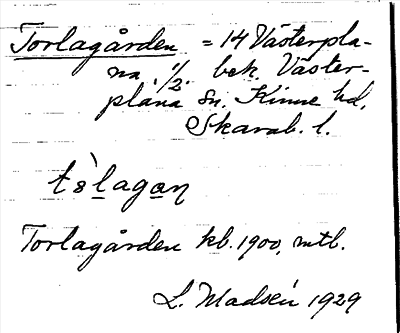 Torlagården = 14 Västerpla-
na 1/2. bek. Väster-
plana sn. Kinne hd.
Skarab. l.
Torlagården kb. 1900, mtl.
L. Madsén 1929